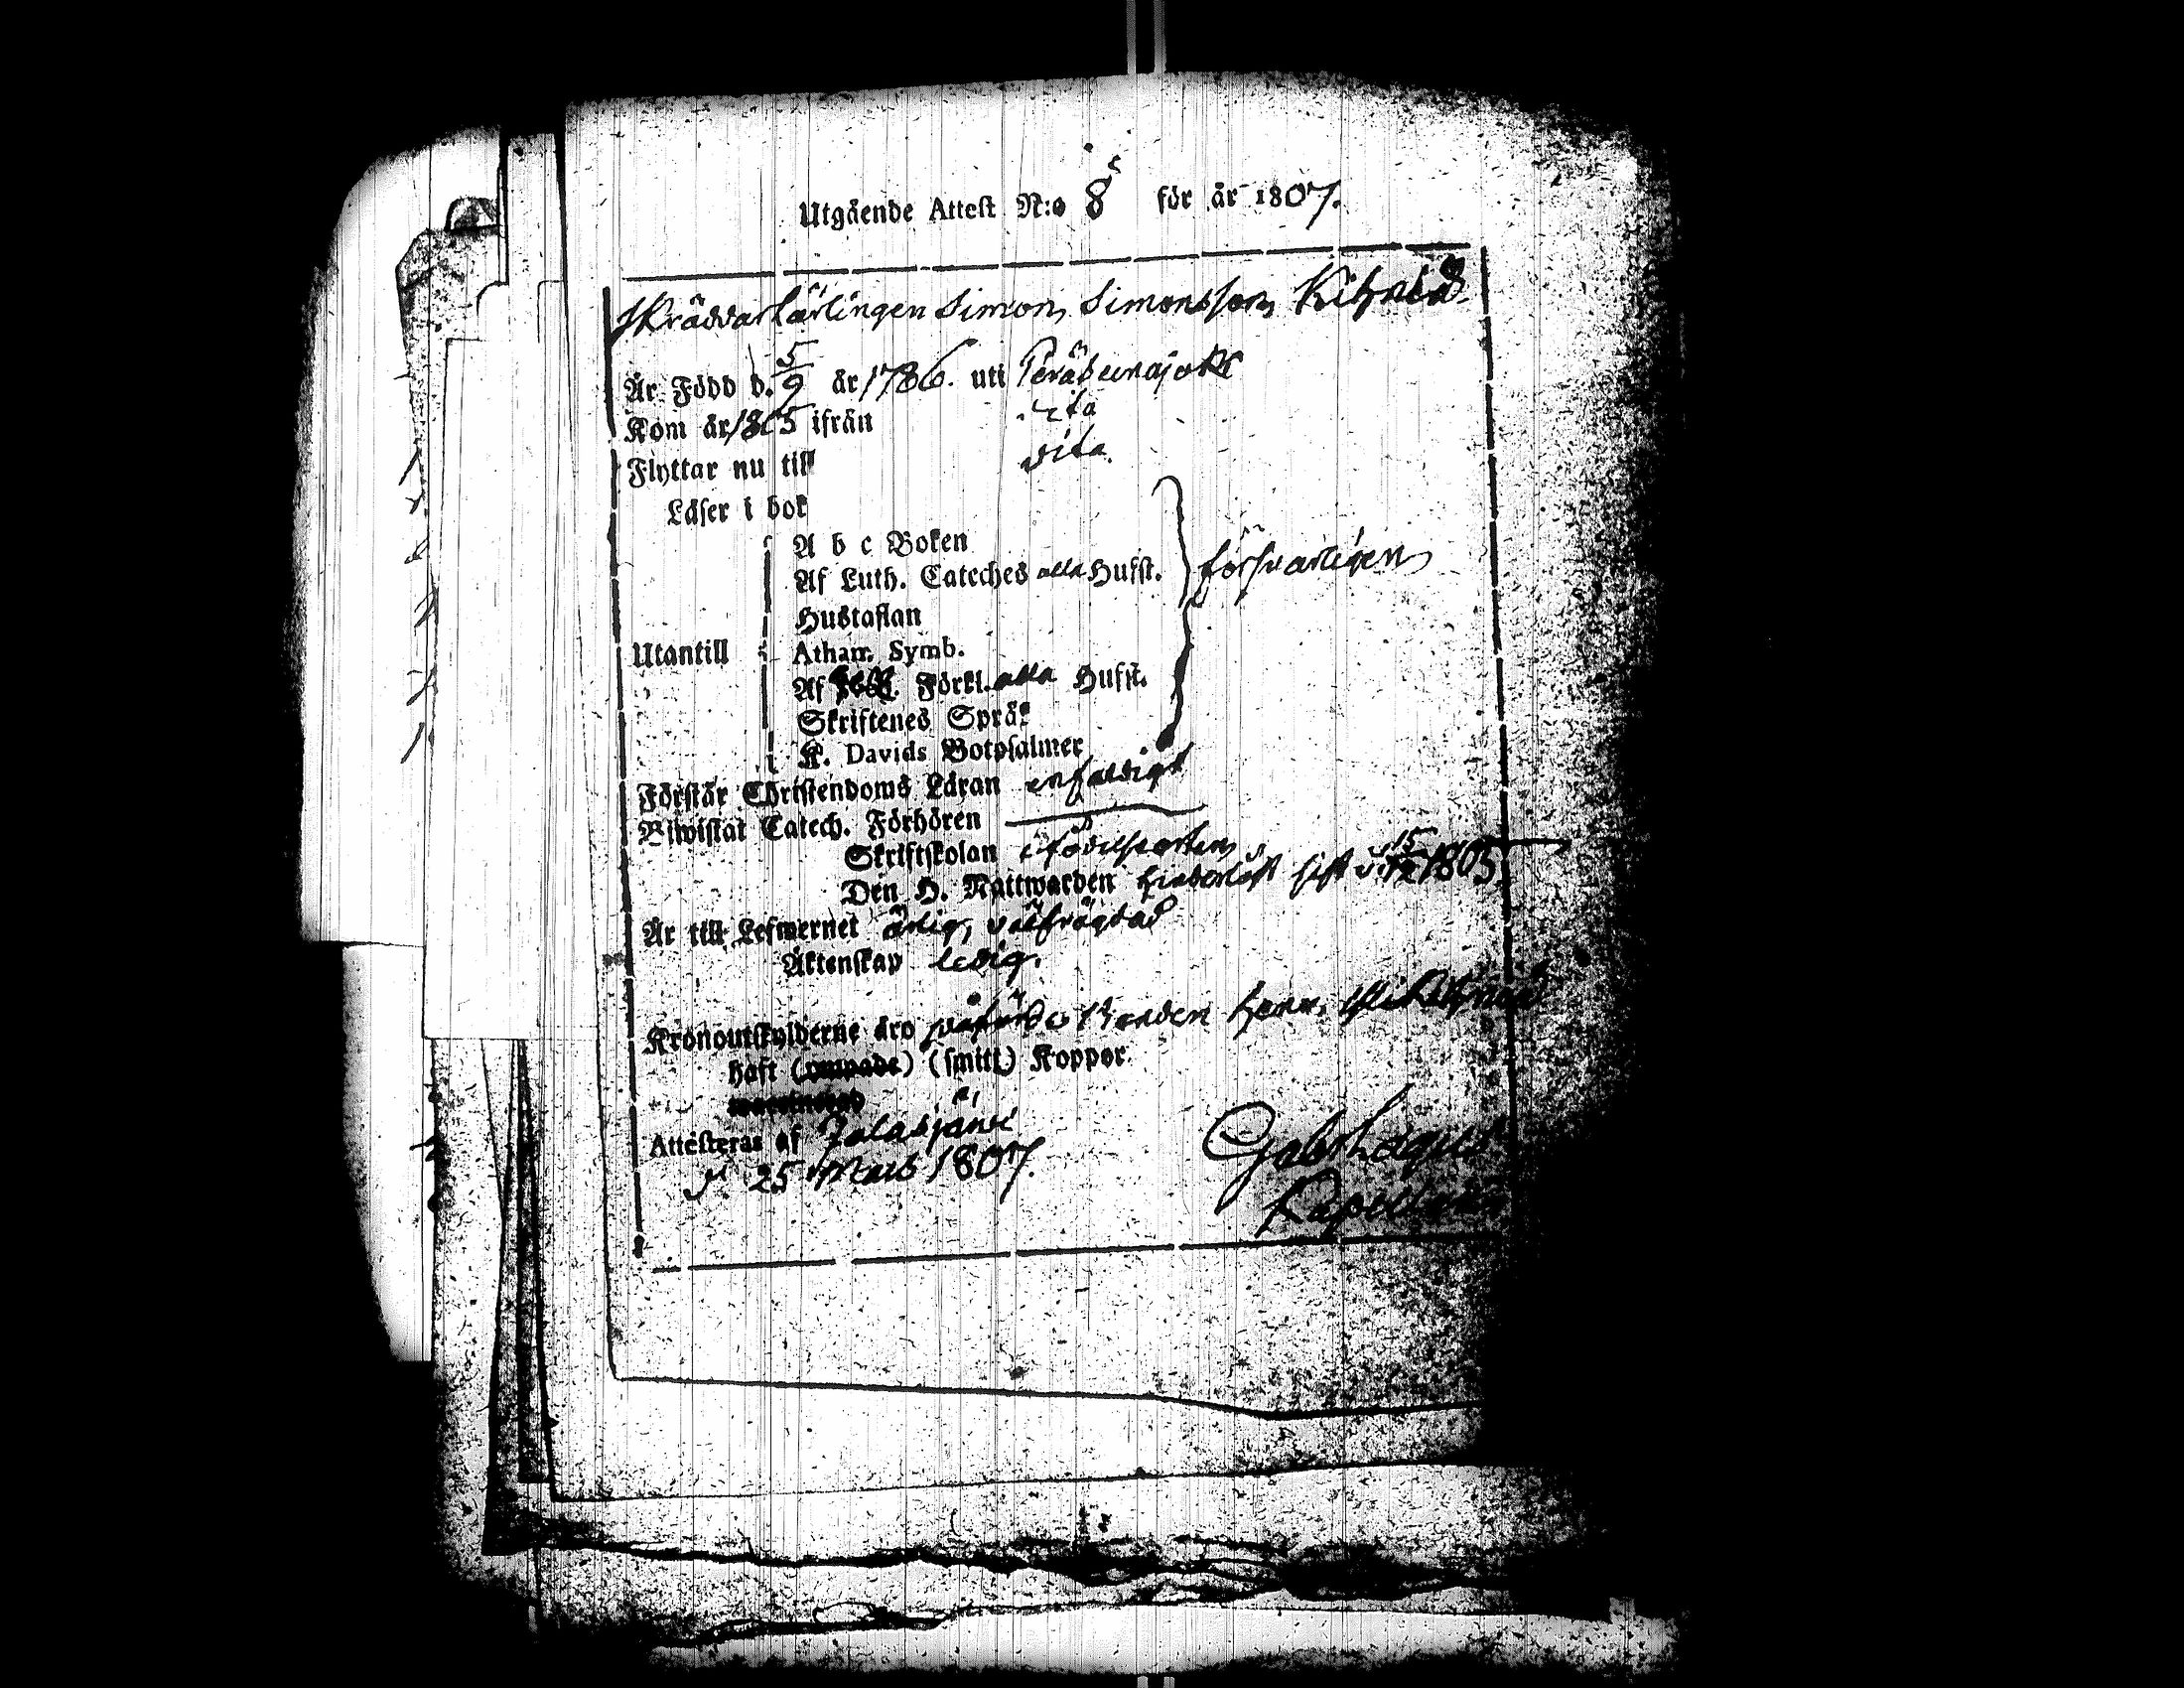 Utgående Attest N:o 8 för år 1807.
Skräddarlärlingen Simon Simonsson
Är Född d. 5/9 år 1786. uti Peräseinäjoki
Kom år 1805 ifrån dito
Flyttar nu till dito
Läser i bok
A b c Boken
Af Luth. Cateches alla Hufst. försvarligen
Hustaflan
Utantill Athan. Symb.
Af Förkl. alla Hufst.
Skriftenes Språk
K. Davids Botpsalmer
Förstår Christendoms Läran enfaldigt
Biwistat Catech. Förhören
Skriftskolan i födelseorten
Den H. Nattwarden hinderlöst sist d. 15/12 1805.
Är till Lefwernet ärlig, välfrägdad
Äktenskap ledig.
Kronoutskylderne äro
haft (smitt.) Koppor
Attesteras af Jalasjärvi
d. 25 Mars 1807.